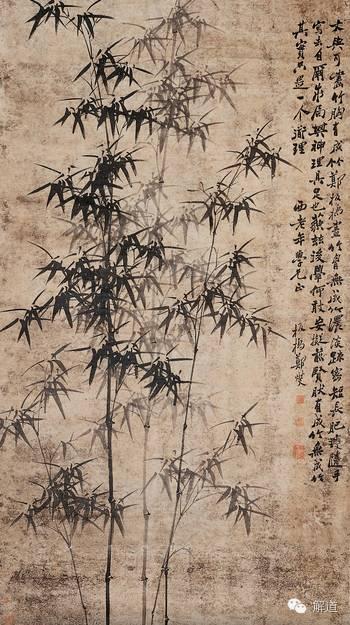 文與可畫竹胸有成竹鄭板橋畫竹胸無成竹濃淡疏密短長肥瘦隨手
寫去自爾成局其神理具足也藐茲後學何敢妄擬前賢然有成竹無成竹
其實只是一個道理
西老年學兄正
板橋鄭燮
解道